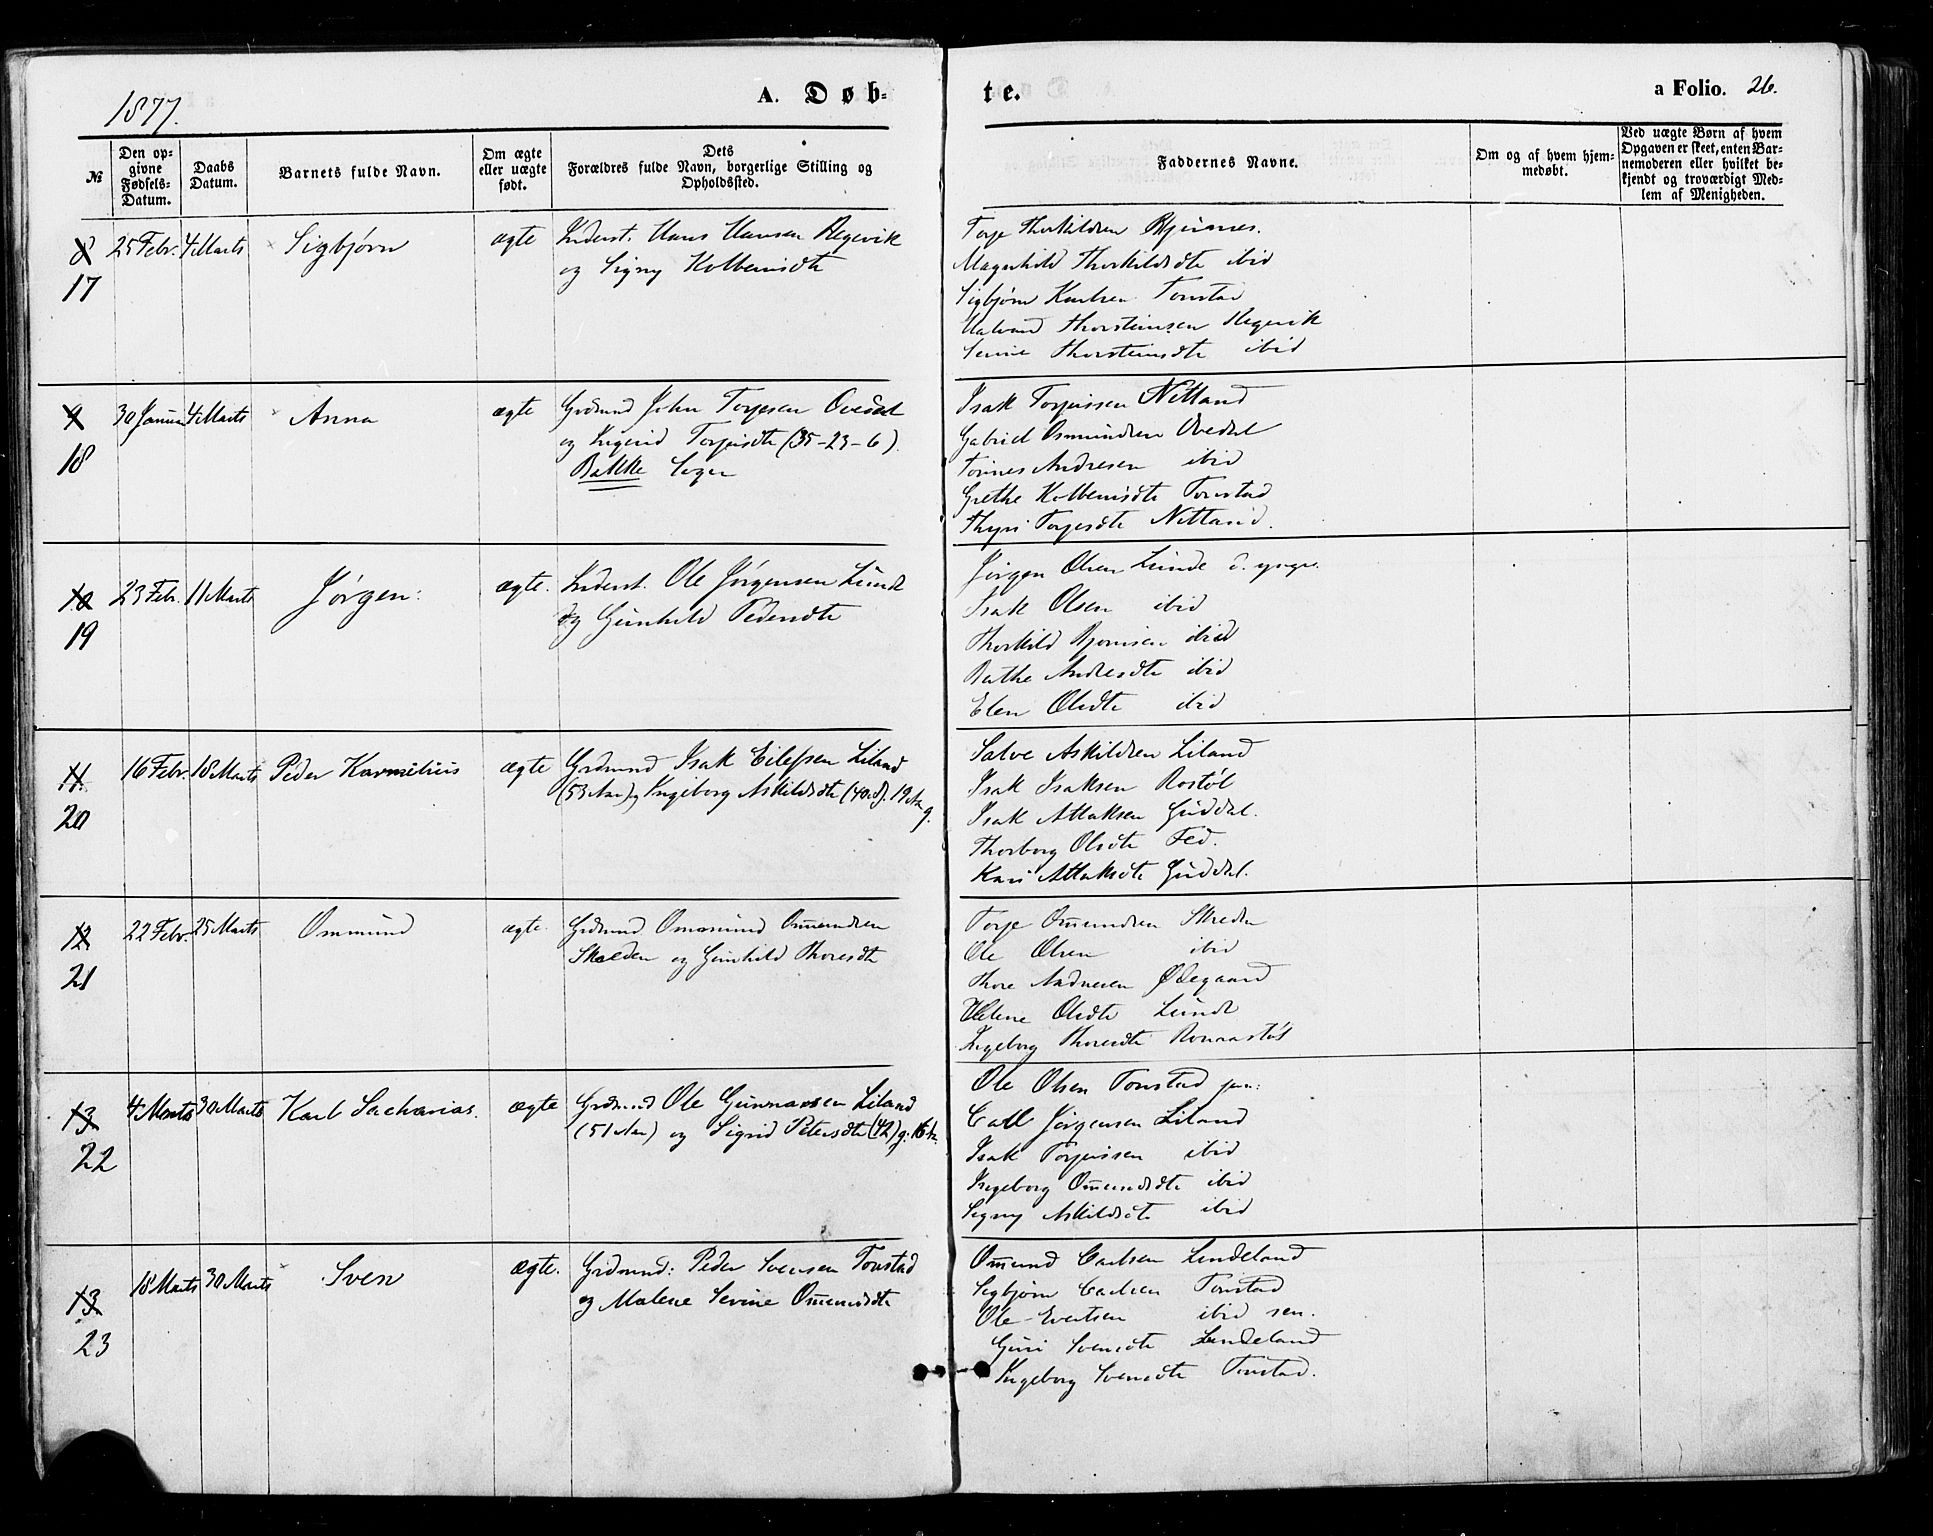 1877.
A. Døb-
te.
a Folio. 26.
№
Den op-
givne
Fødsels-
Datum.
Daabs
Datum.
Barnets fulde Navn.
Om ægte
eller uægte
født.
Dets
Forældres fulde Navn, borgerlige Stilling og
Opholdssted.
Faddernes Navne.
Om og af hvem hjem-
medøbt.
Ved uægte Børn af hvem
Opgaven er skeet, enten Bar-
nemoderen eller hvilket be-
kjendt og troværdigt Med-
lem af Menigheden.
8 25 Febr. 4 Marts Sigbjørn ægte Inderst. Hans Hansen Hegevik
17 og Signy Kolbensdtr
Torje Thorkildsen
Magnhild Thorkildsdtr ibid
Sigbjørn Karlsen Tonstad
Thorsteinsen Hegevik
Thorsteinsdtr ibid
9 30 Januar 4 Marts Anna ægte Grdmnd John Torjesen Ovedal
18 og Ingerid Torjusdtr (35-23-6).
Bakke Sogn
Isak Torjussen Netland
Gabriel Osmundsen Ovedal
Tønnes Andresen ibid
Grethe Kolbensdtr Tonstad
Thyri Torjesdtr Netland.
10 23 Febr. 11 Marts Jørgen: ægte. Inderst. Ole Jørgensen Lunde
19 og Gunhild Pedersdtr
Jørgen Olsen Lunde d. yngre.
Isak Olsen ibid
Thorkild Bjørnsen ibid
Berthe Andresdtr ibid
Elen Olsdtr ibid
11 16 Febr. 18 Marts Peder Karnelius ægte Grdmnd Isak Eilefsen Liland
20 (53 Aar) og Ingeborg Askildsdtr (40 ) 19 Aar
g.
Salve Askildsen Liland
Isak Isaksen Rostøl
Isak Atlaksen Guddal.
Thorborg Olsdtr Fed.
Kari Atlaksdtr Guddal.
12 22 Febr. 25 Marts Ommund ægte. Grdmnd Ommund Ommundsen
21 Skreden og Gunhild Thoresdtr
Torje Ommundsen Skreden
Ole Olsen ibid
Thore Andresen Ødegaard
Helene Olsdtr Lunde
Ingeborg Thoresdtr
13 4 Marts 30 Marts Karl Sacharias. ægte Grdmnd Ole Gunnarsen Liland
22 (51 Aar) og Sigrid Petersdtr (42) g. 16 A.
Ole Olsen Tonstad jun:
Carl Jørgensen Liland
Isak Torjussen ibid
Ingeborg Ommundsdtr ibid
Signy Askildsdtr ibid
13 18 Marts 30 Marts Sven ægte. Grdmnd: Peder Svensen Tonstad
23 og Malene Sevine Ommundsdtr
Ommund Carlsen Lindeland
Sigbjørn Carlsen Tonstad
Ole Evertsen ibid sen.
Guri Svensdtr Lindeland
Ingeborg Svensdtr Tonstad.